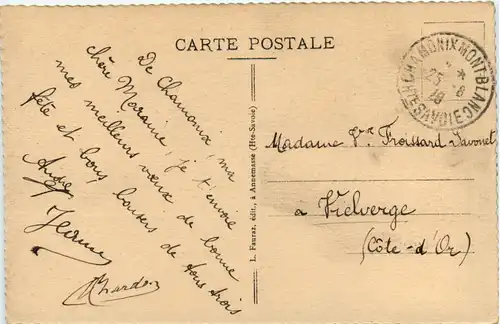 CARTE POSTALE
De Chamonix, ma
chère Marraine, je t'envoie
mes meilleurs vœux de bonne
fête et bons baisers de tous trois
André
Jeanne
L. Fauraz, édit., à Annemasse (Hte-Savoie)
CHAMONIX-MONT-BLANC
Hte SAVOIE
25 - 8
Madame Vve Froissard-Savonet
à Vielverge
(Côte-d'Or)